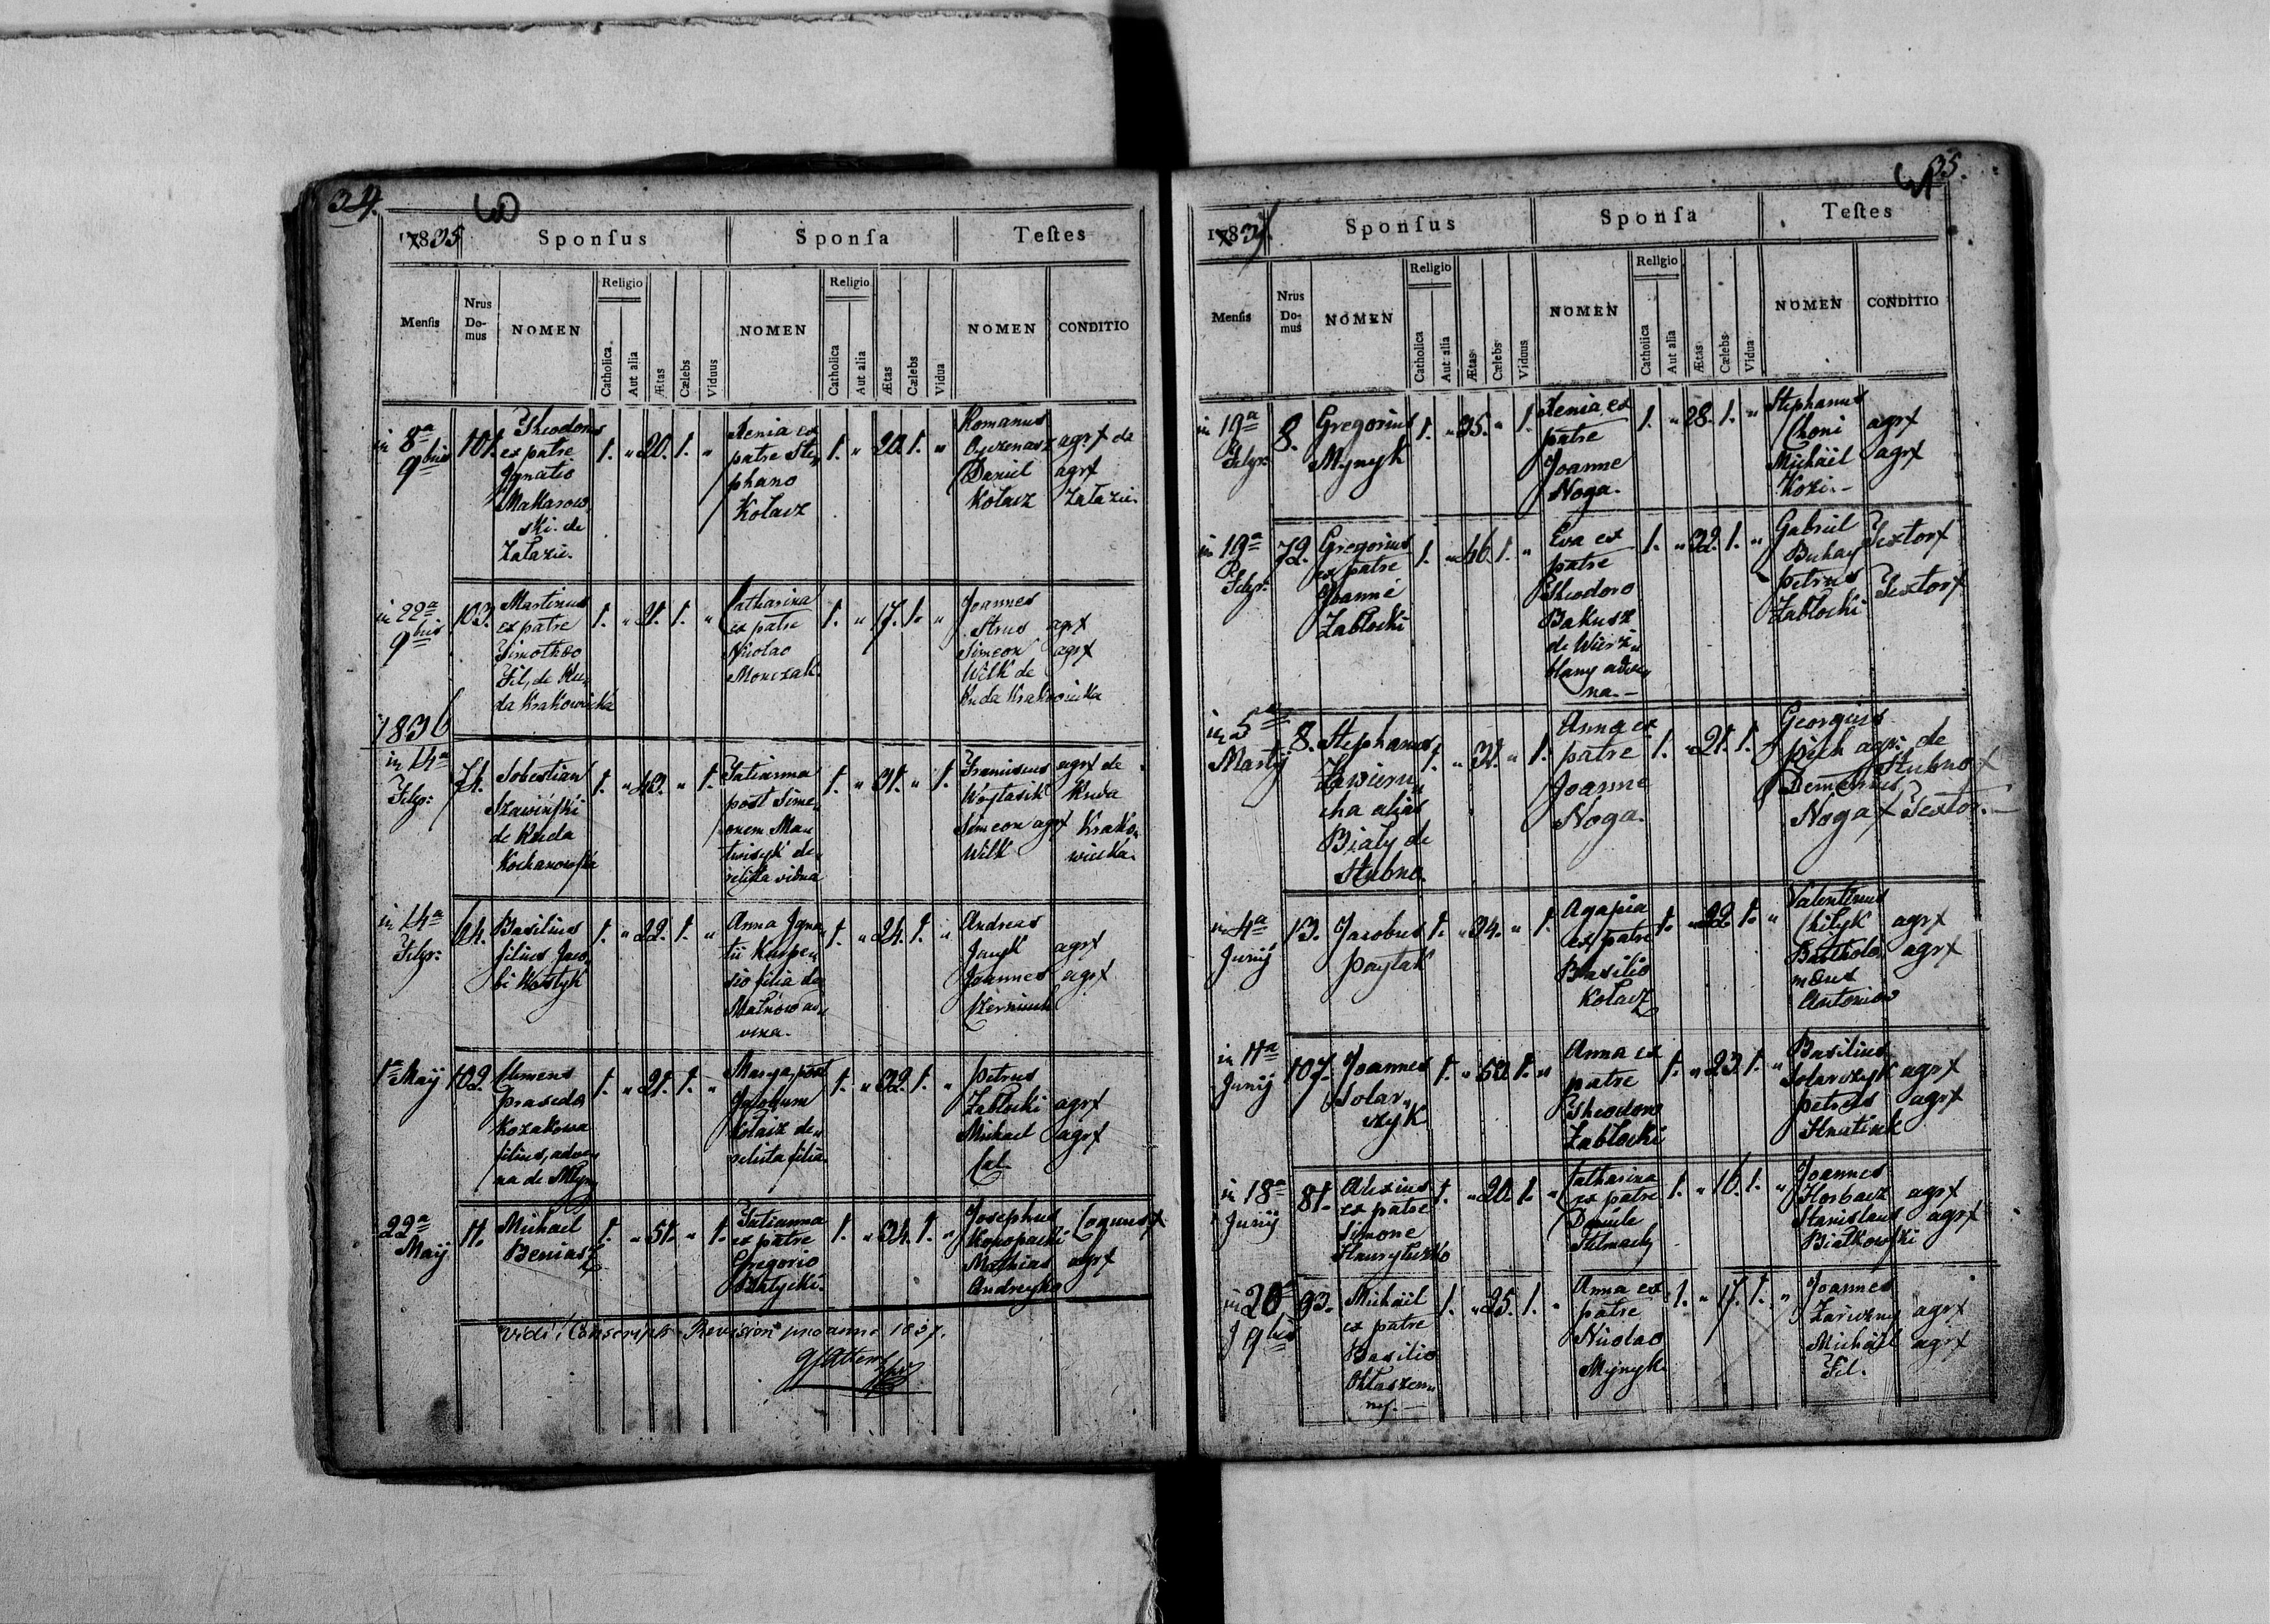 34.
60
1835
Sponsus
Sponsa
Testes
Mensis
Nrus Domus
NOMEN
Religio
Catholica
Aut alia
Ætas
Cælebs
Viduus
NOMEN
Religio
Catholica
Aut alia
Ætas
Cælebs
Vidua
NOMEN
CONDITIO
in 8a 9bris
101.
Theodorus
ex patre
Ignatio
Makarow
ski de
Załazie.
1. " 20. 1. "
Xenia ex
patre Ste,,
phano
Kołacz
1. " 20. 1. "
Romanus
Daniel
Kołacz
agr+ de
agr+
Załazie.
in 22a 9bris
103.
Martinus
ex patre
Timotheo
Fil, de Ru,,
da Krakowiecka
1. " 21. 1. "
Catharina
ex patre
Nicolao
Monczak.
1. " 17. 1. "
Joannes
Strus
Simeon
Wilk de
Ruda Krakowiecka
agr+
agr+
1836
in 14a Febr:
71.
Sobestian
de Ruda
Kochanowska
1. " 43. " 1.
Tatianna
post Sime,,
onem Ma,,
de,,
relicta vidua
1. " 31. " 1.
Franciscus
Wojtasik
Simeon agr+
Wilk
agr+ de
Ruda
Krako,,
wiecka.
in 14a Febr:
64.
Basilius
filius Jaco,,
bi Kostyk
1. " 22. 1. "
Anna Igna,,
tii
filia de
ad,,
vena.
1. " 24. 1. "
Andreas
Joannes
agr+
agr+
1a Maij
102.
Clemens
Kozakowa
filius, adve,,
na de Młyny
1. " 21. 1. "
Marya post
Jacobum
Kołacz de,,
relicta filia.
1. " 32. 1. "
Petrus
Zabłocki
Michael
Cal
agr+
agr+
22a Maij
11.
Michael
Beniasz
1. " 51. " 1.
Tatianna
ex patre
Gregorio
1. " 34. 1. "
Josephus
Kopopacki
Mathias
Andreyko
Coquus+
agr+
Vidi! Conscript. Revision pro anno 1837.
35.
61
1837.
Sponsus
Sponsa
Testes
Mensis
Nrus Domus
NOMEN
Religio
Catholica
Aut alia
Ætas
Cælebs
Viduus
NOMEN
Religio
Catholica
Aut alia
Ætas
Cælebs
Vidua
NOMEN
CONDITIO
in 19a Febr:
8.
Gregorius
Mynyk
1. " 35. " 1.
Xenia ex
patre
Joanne
Noga.
1. " 28. 1. "
Stephanus
Choni
Michäel
Kozi.-
agr+
agr+
in 19a Febr:
72.
Gregorius
ex patre
Joanne
Zabłocki
1. " 46. 1. "
Eva ex
patre
Theodoro
Bakusz
de Wierz,,
blany adve,,
na.-
1. " 32. 1. "
Gabriel
Buhay
Petrus
Zabłocki
Textor+
Textor+
in 5a Martij
8.
Stephanus
Zawieru,,
cha alias
Biały de
Stubno.
1. " 32. " 1.
Anna ex
patre
Joanne
Noga.
1. " 21. 1. "
Georgius
Pich agr: de
Stubno+
Demetrius
Noga+ Textor.-
in 4a Junij
13.
Jacobus
Paytak
1. " 34. " 1.
Agapia
ex patre
Basilio
Kołacz
1. " 22. 1. "
Valentinus
Chilyk
Bartholo,,
mæus
Antoniow
agr+
agr+
in 11a Junij
107.
Joannes
Solar,,
czyk
1. " 50. 1. "
Anna ex
patre
Theodoro
Zabłocki
1. " 23. 1. "
Basilius
Solarczyk
Petrus
Hnatiuk
agr+
agr+
in 18a Junij
81.
Alexius
ex patre
Simone
1. " 20. 1. "
Catharina
ex patre
Daniele
Stelmach
1. " 16. 1. "
Joannes
Horbacz
Stanislaus
Białkowski
agr+
agr+
in 20a 9bris
93.
Michäel
ex patre
Basilio
Okłaszen,,
ny.-
1. " 25. 1. "
Anna ex
patre
Nicolao
Mynyk
1. " 17. 1. "
Joannes
Zariczny
Michäel
Fil.
agr+
agr+